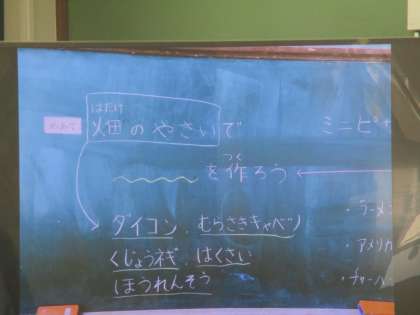 めあて
はたけ
畑のやさいで
つく
を作ろう
ダイコン、むらさきキャベツ
くじょうネギ、はくさい
ほうれんそう
ミニピザ
・ラーメン
・アメリカ
・チャーハン